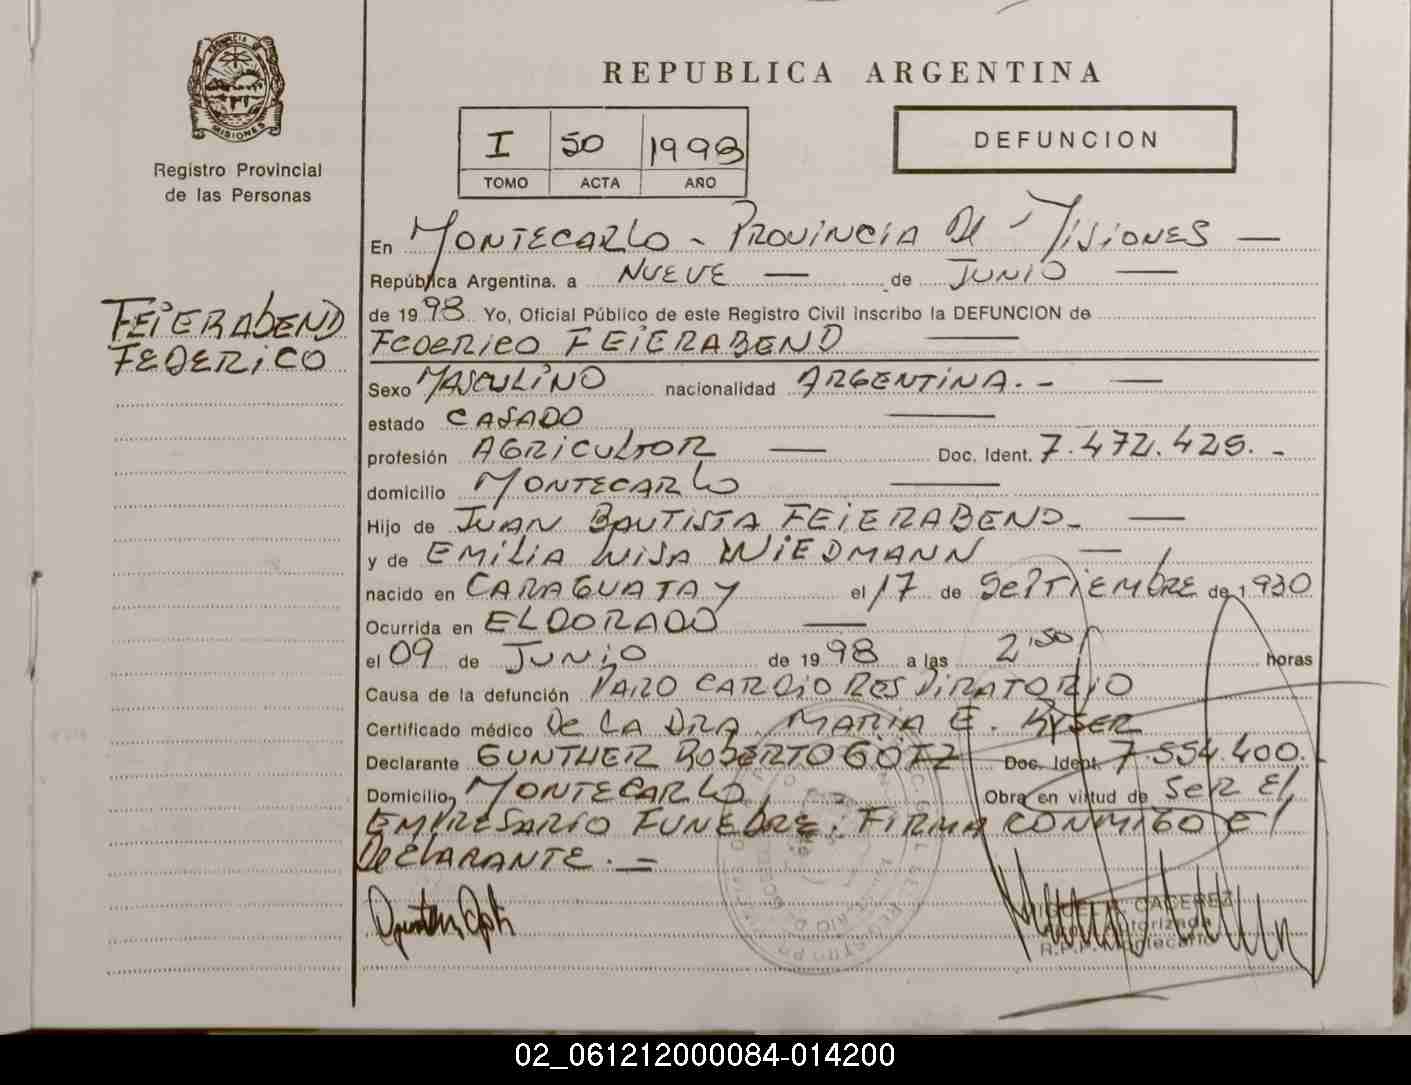 PROVINCIA DE
MISIONES
Registro Provincial
de las Personas
REPUBLICA ARGENTINA
I 50 1998
TOMO ACTA AÑO
DEFUNCION
En MONTECARLO - PROVINCIA DE MISIONES —
República Argentina. a NUEVE — de JUNIO —
de 1998 Yo, Oficial Público de este Registro Civil inscribo la DEFUNCION de
FEDERICO FEIERABEND —
FEIERABEND
FEDERICO
Sexo MASCULINO nacionalidad ARGENTINA. - —
estado CASADO —
profesión AGRICULTOR — Doc. Ident. 7.472.425. -
domicilio MONTECARLO —
Hijo de JUAN BAUTISTA FEIERABEND - —
y de EMILIA LUISA WIEDMANN —
nacido en CARAGUATAY el 17 de SEPTIEMBRE de 1.930
Ocurrida en ELDORADO —
el 09 de JUNIO de 1998 a las 2,50 horas
Causa de la defunción PARO CARDIO RESPIRATORIO
Certificado médico De LA DRA. MARIA E. RYSER
Declarante GUNTHER ROBERTO GÖTZ Doc. Ident. 7.554.400.
Domicilio, MONTECARLO Obra en virtud de SER El
EMPRESARIO FUNEBRE. FIRMA CONMIGO El
DECLARANTE. —
CACEREZ
02_061212000084-014200